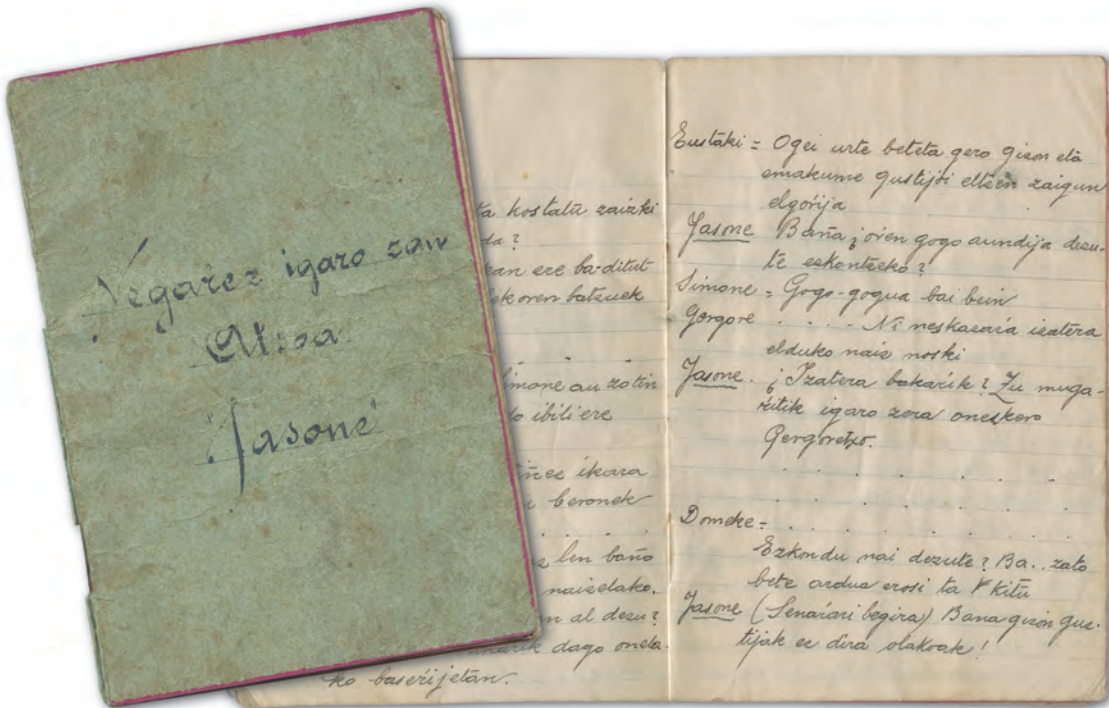 Negarrez igaro zan
Atsoa
Jasone
ta kostatu zaizki
da?
kan ere ba-ditut
ekoren batzuek
. . .
Simone au zotin
do ibili ere
ikara
beronek
. . .
len baño
naizelako.
n al dezu?
dago oneta-
ko baserijetan.
Eustaki = Ogei urte beteta gero gizon eta
emakume gustijoi eltzen zaigun
elgorija
Jasone Baña ¿oŕen gogo aundija dezu-
te ezkontzeko?
Simone = Gogo-gogua bai bein
Gergore . . . . - Ni neskazaŕa izatera
elduko naiz noski
Jasone. ¿Izatera bakaŕik? Zu muga-
ŕitik igaro zera onezkero
Gergoretxo.
. . . . . .
. . . . . .
Domeke = . . . . . .
Ezkondu nai dezute? Ba.. zato
bete ardua erosi ta kitu
Jasone (Senaŕari begira) Bana gizon gus-
tijak ez dira olakoak!